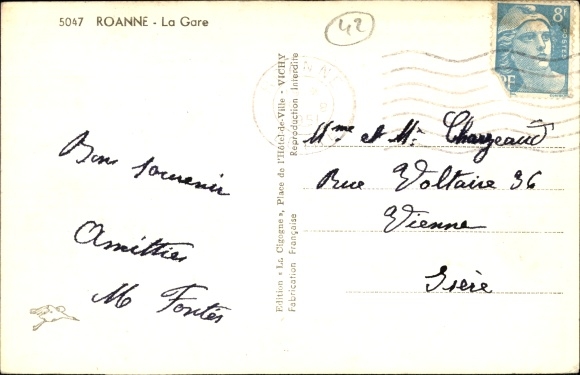 5047 ROANNE - La Gare
42
8f
POSTES
RF
Bons souvenir
Amitties
M Fontés
Edition « La Cigogne », Place de l'Hôtel-de-Ville - VICHY
Fabrication Française Reproduction Interdite
Mme et Mr Chazeaud
Rue Voltaire 36
Vienne
Isère